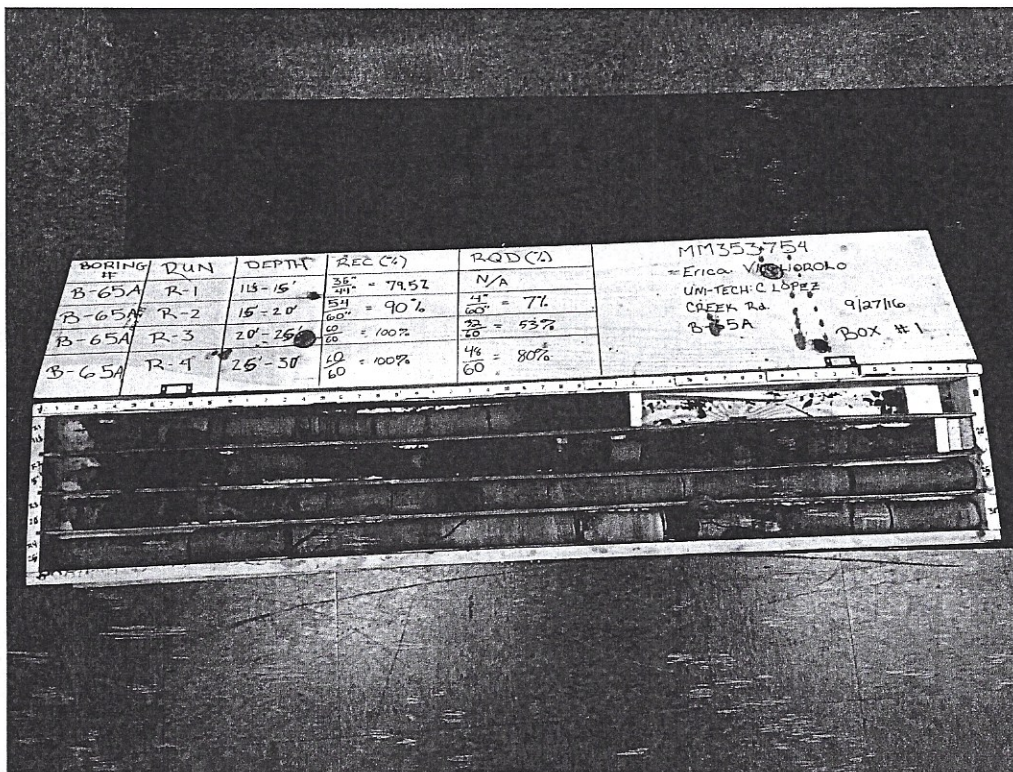 BORING # RUN DEPTH REC (%) RQD (%)
B-65A R-1 = 79.5% N/A
B-65A R-2 15'-20' 54/60" = 90% 4"/60" = 7%
B-65A R-3 20'-25' 60/60 = 100% 32/60 = 53%
B-65A R-4 25'-30' 60/60 = 100% 48/60 = 80%
MM353754
Erica
UNI-TECH: C LOPEZ
CREEK Rd.
B-65A
9/27/16
BOX #1